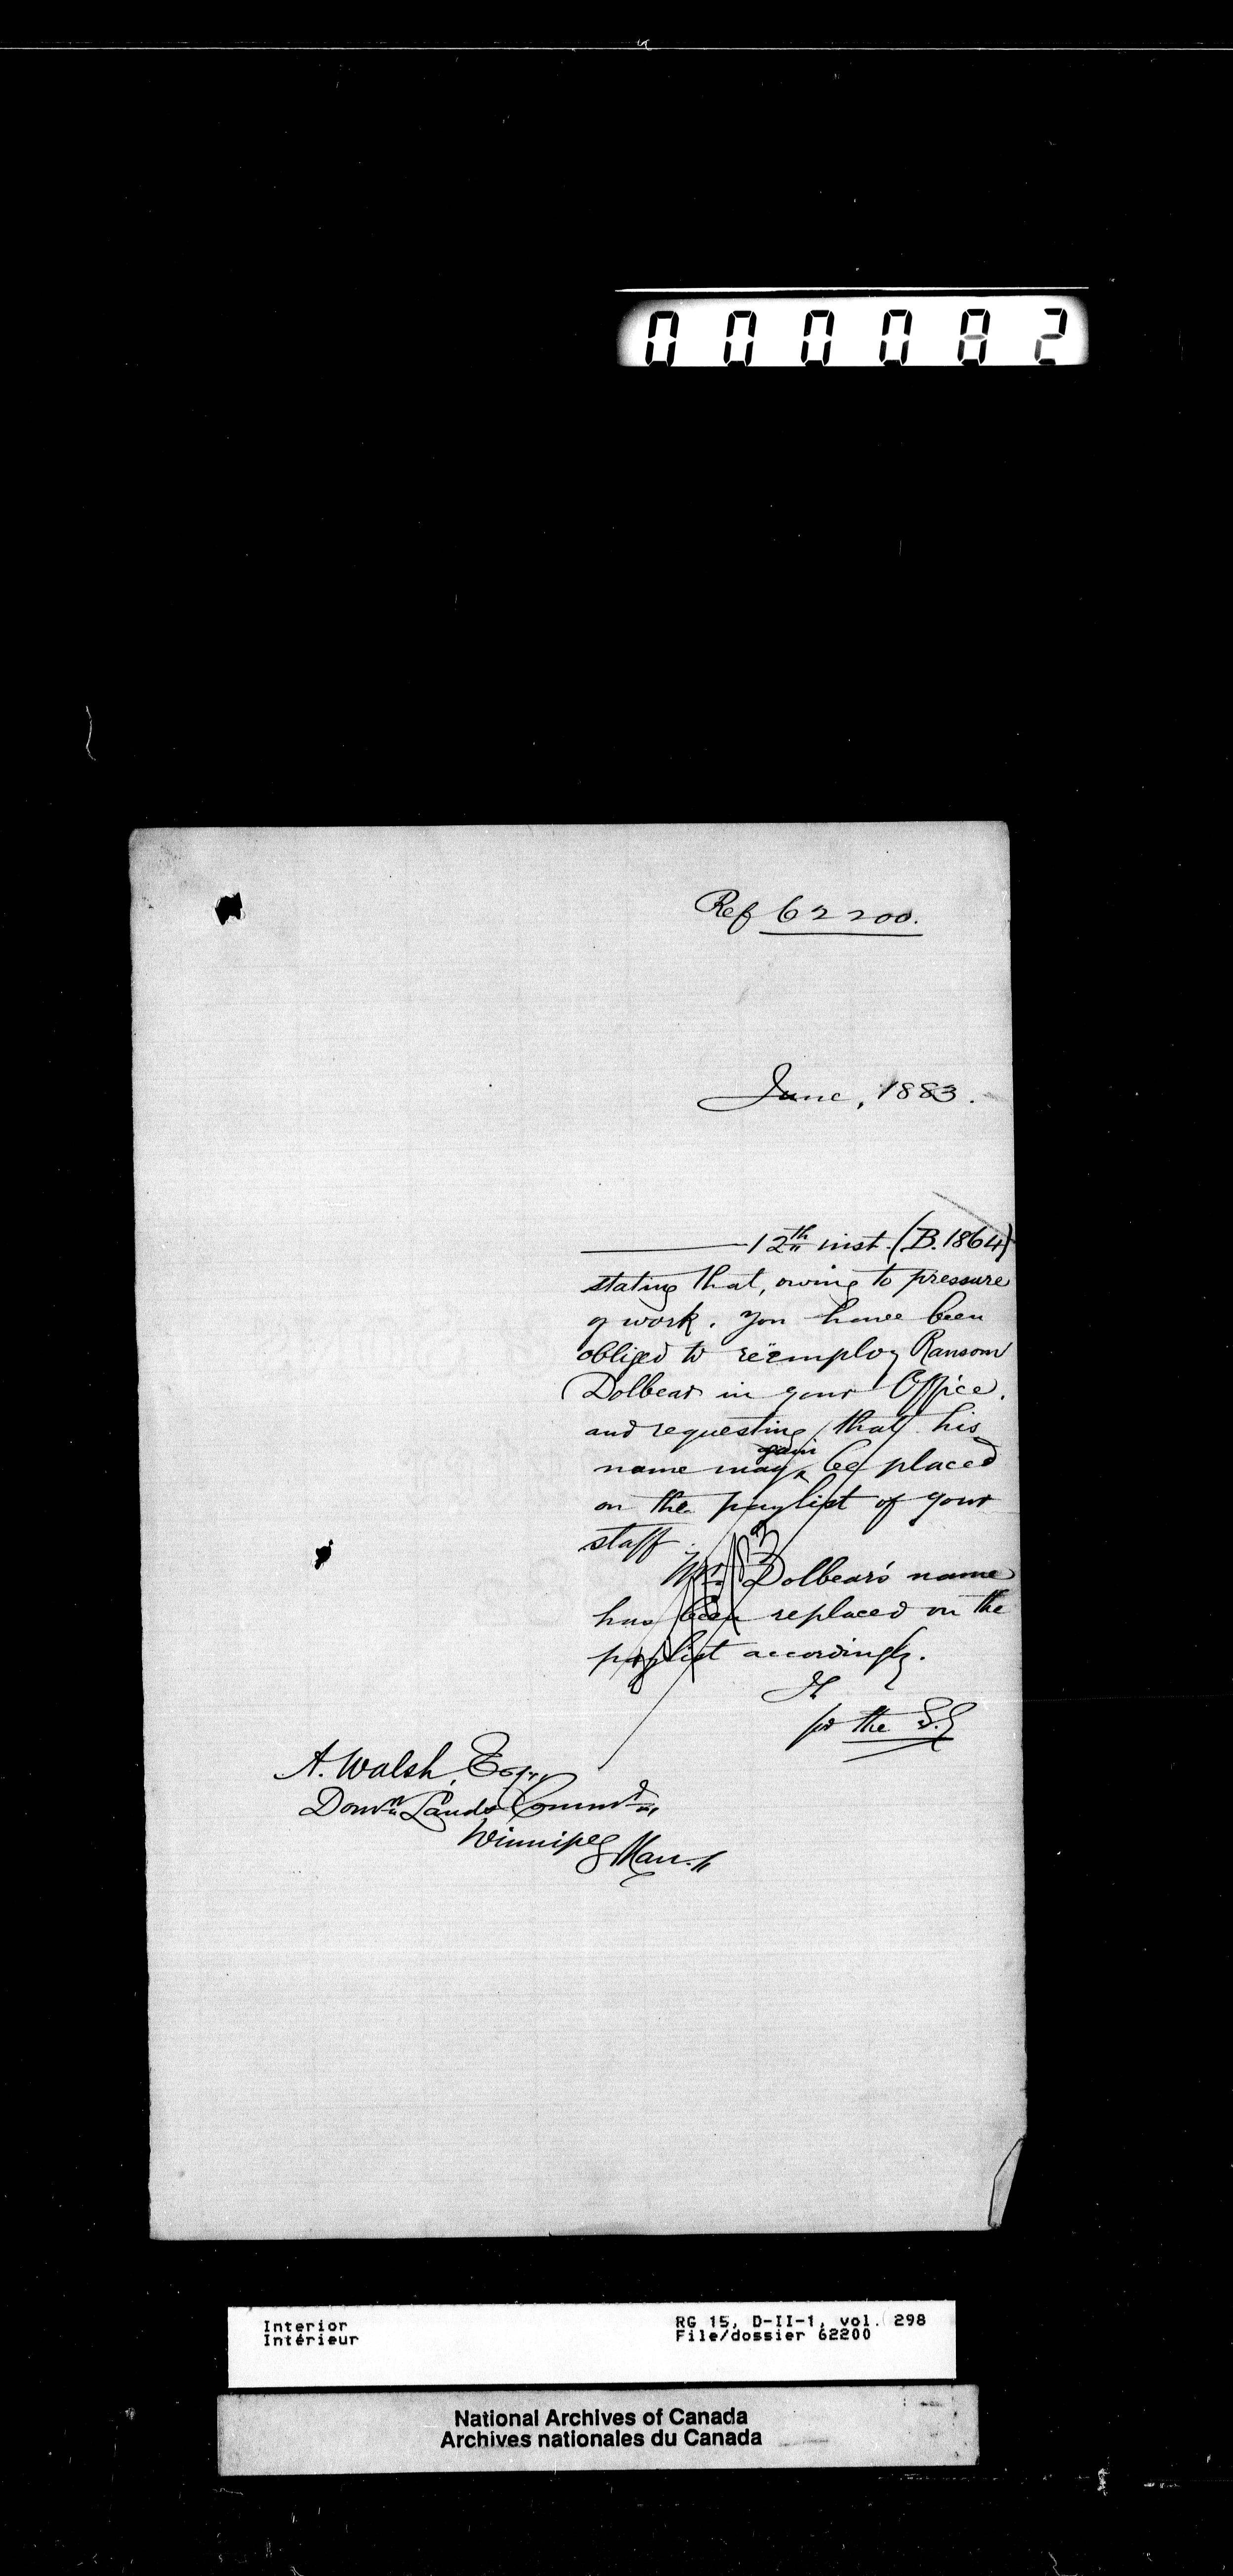 000082
Ref 62200.
June, 1883.
12th inst. (B. 1864)
stating that, owing to pressure
of work, you have been
obliged to reëmploy Ransom
Dolbear in your Office,
and requesting that his
name may again be placed
on the paylist of your
staff.
Mr. Dolbear's name
has been replaced on the
paylist accordingly.
for the S.G
A. Walsh, Esq.,
Domn Lands Commr,
Winnipeg Man.
Interior
Intérieur
RG 15, D-II-1, vol. 298
File/dossier 62200
National Archives of Canada
Archives nationales du Canada